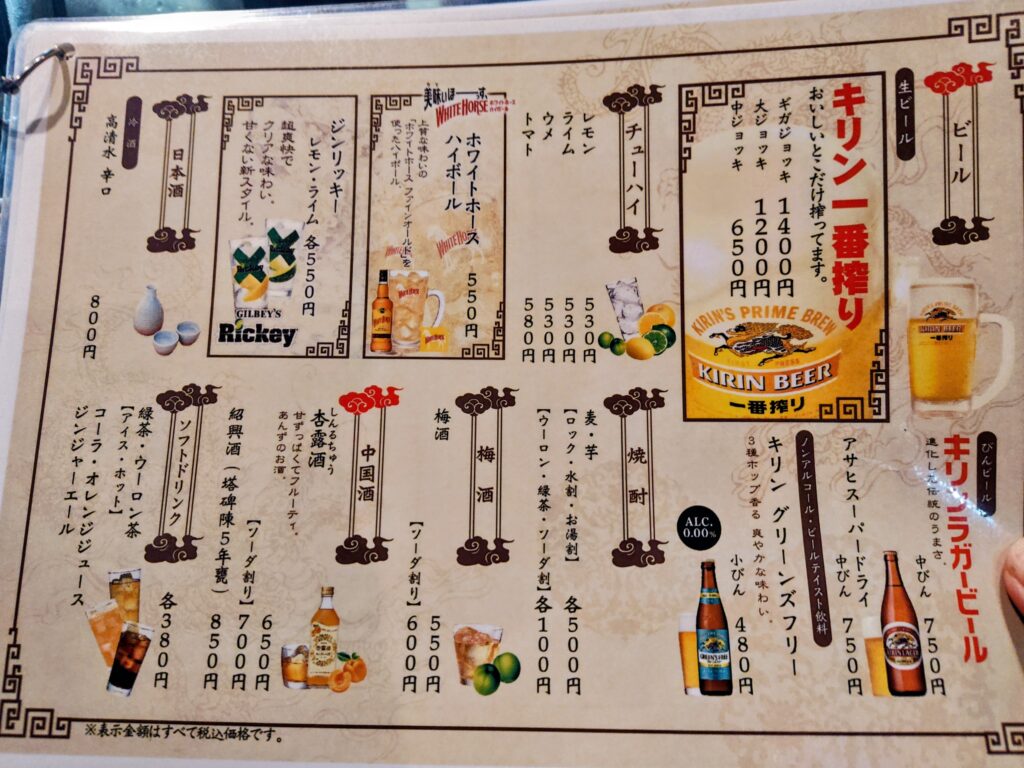 ビール
生ビール
キリン一番搾り
おいしいとこだけ搾ってます。
ギガジョッキ 1400円
大ジョッキ 1200円
中ジョッキ 650円
KIRIN'S PRIME BREW
FIRST PRESS
KIRIN BEER
一番搾り
KIRIN BEER
一番搾り
チューハイ
レモン 530円
ライム 530円
ウメ 530円
トマト 580円
美味いほーす。
WHITE HORSE
ホワイトホース
ハイボール
ホワイトホース
ハイボール 550円
上質な味わいの
「ホワイトホース ファインオールド」を
使ったハイボール。
ジンリッキー
レモン・ライム 各550円
超爽快で
クリアな味わい。
甘くない新スタイル。
GILBEY'S
Rickey
日本酒
冷酒
高清水 辛口 800円
びんビール
キリンラガービール
進化した伝統のうまさ。
中びん 750円
アサヒスーパードライ
中びん 750円
ノンアルコール・ビールテイスト飲料
キリン グリーンズフリー
3種ホップ香る 爽やかな味わい。
小びん 480円
ALC.
0.00%
焼酎
麦・芋
【ロック・水割・お湯割】 各500円
【ウーロン・緑茶・ソーダ割】 各100円
梅酒
梅酒 550円
【ソーダ割り】 600円
中国酒
しんるちゅう
杏露酒 650円
甘ずっぱくてフルーティ。
あんずのお酒。
【ソーダ割り】 700円
紹興酒(塔碑陳5年甕) 850円
ソフトドリンク
緑茶・ウーロン茶
【アイス・ホット】
コーラ・オレンジジュース
ジンジャーエール
各380円
※表示金額はすべて税込価格です。